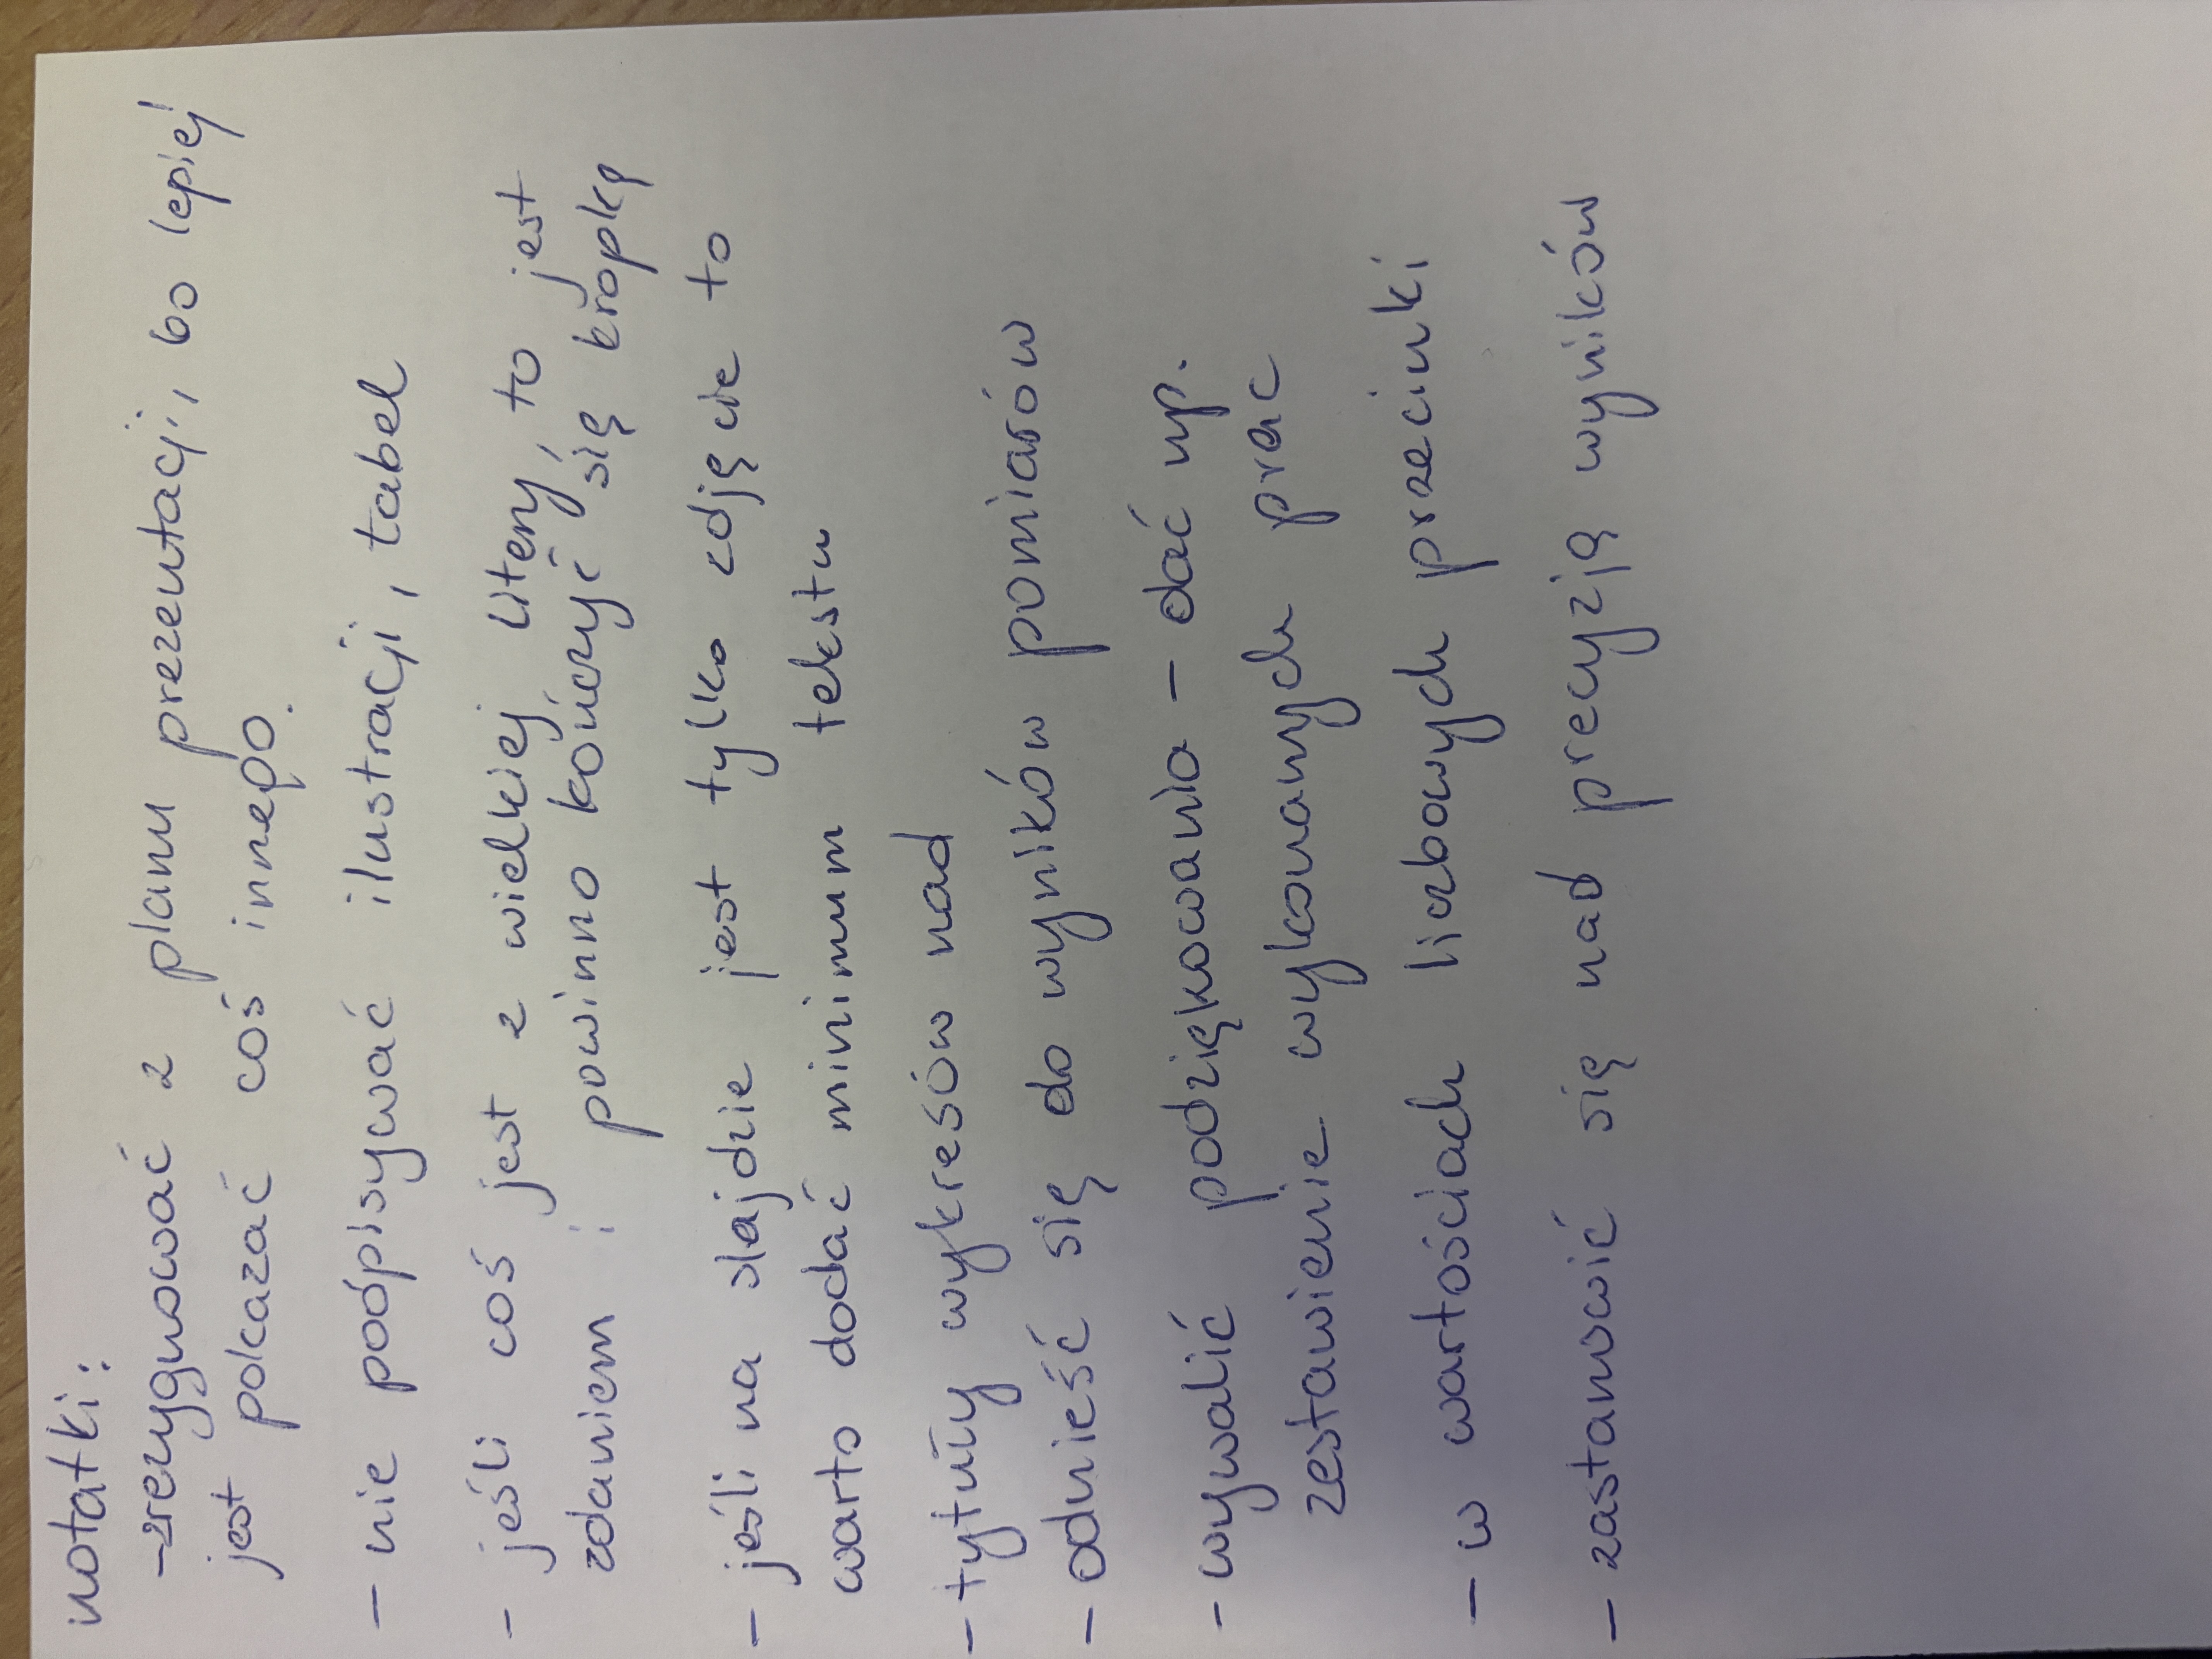 notatki:
-zrezygnować z planu prezentacji, bo lepiej
jest pokazać coś innego.
- nie podpisywać ilustracji, tabel
- jeśli coś jest z wielkiej litery, to jest
zdaniem i powinno kończyć się kropką
- jeśli na slajdzie jest tylko zdjęcie to
warto dodać minimum tekstu
- tytuły wykresów nad
- odnieść się do wyników pomiarów
- wywalić podziękowania - dać np.
zestawienie wykonanych prac
- w wartościach liczbowych przecinki
- zastanowić się nad precyzją wyników